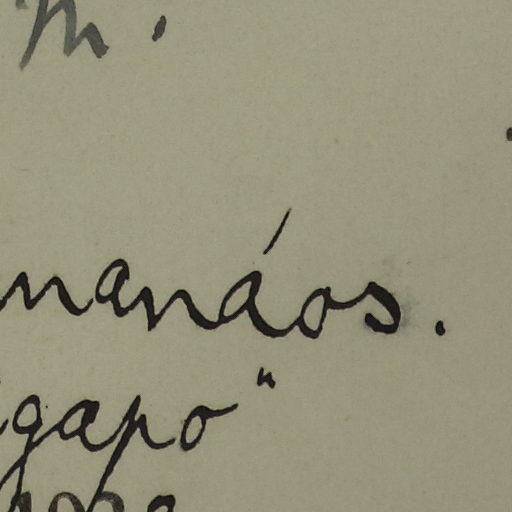 m.
manáos.
gapo"